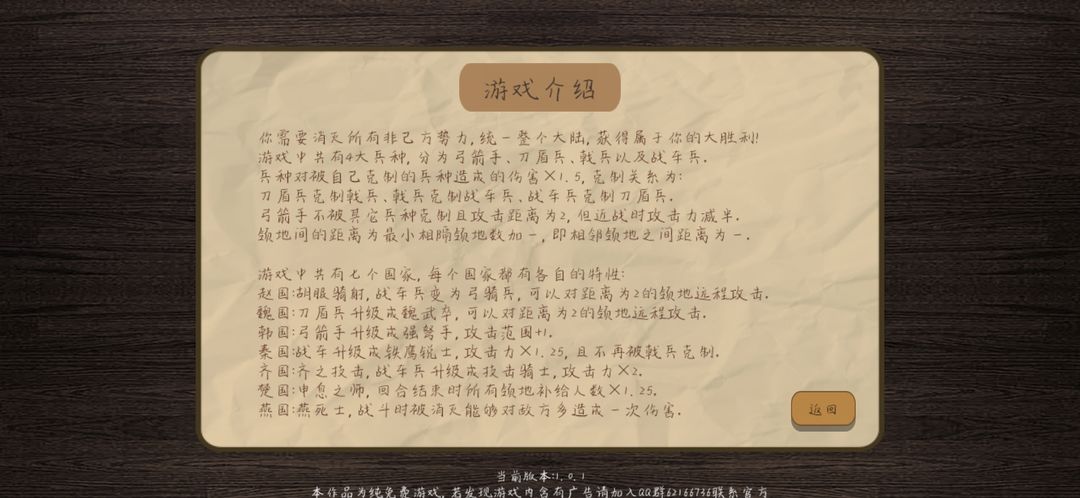 游戏介绍
你需要消灭所有非己方势力,统一整个大陆,获得属于你的大胜利!
游戏中共有4大兵种,分为弓箭手、刀盾兵、戟兵以及战车兵.
兵种对被自己克制的兵种造成的伤害×1.5,克制关系为:
刀盾兵克制戟兵、戟兵克制战车兵、战车兵克制刀盾兵.
弓箭手不被其它兵种克制且攻击距离为2,但近战时攻击力减半.
领地间的距离为最小相隔领地数加一,即相邻领地之间距离为一.
游戏中共有七个国家,每个国家都有各自的特性:
赵国:胡服骑射,战车兵变为弓骑兵,可以对距离为2的领地远程攻击.
魏国:刀盾兵升级成魏武卒,可以对距离为2的领地远程攻击.
韩国:弓箭手升级成强弩手,攻击范围+1.
秦国:战车升级成铁鹰锐士,攻击力×1.25,且不再被戟兵克制.
齐国:齐之技击,战车兵升级成技击骑士,攻击力×2.
楚国:申息之师,回合结束时所有领地补给人数×1.25.
燕国:燕死士,战斗时被消灭能够对敌方多造成一次伤害.
返回
当前版本:1.0.1
本作品为纯免费游戏,若发现游戏内含有广告请加入QQ群62166736联系官方